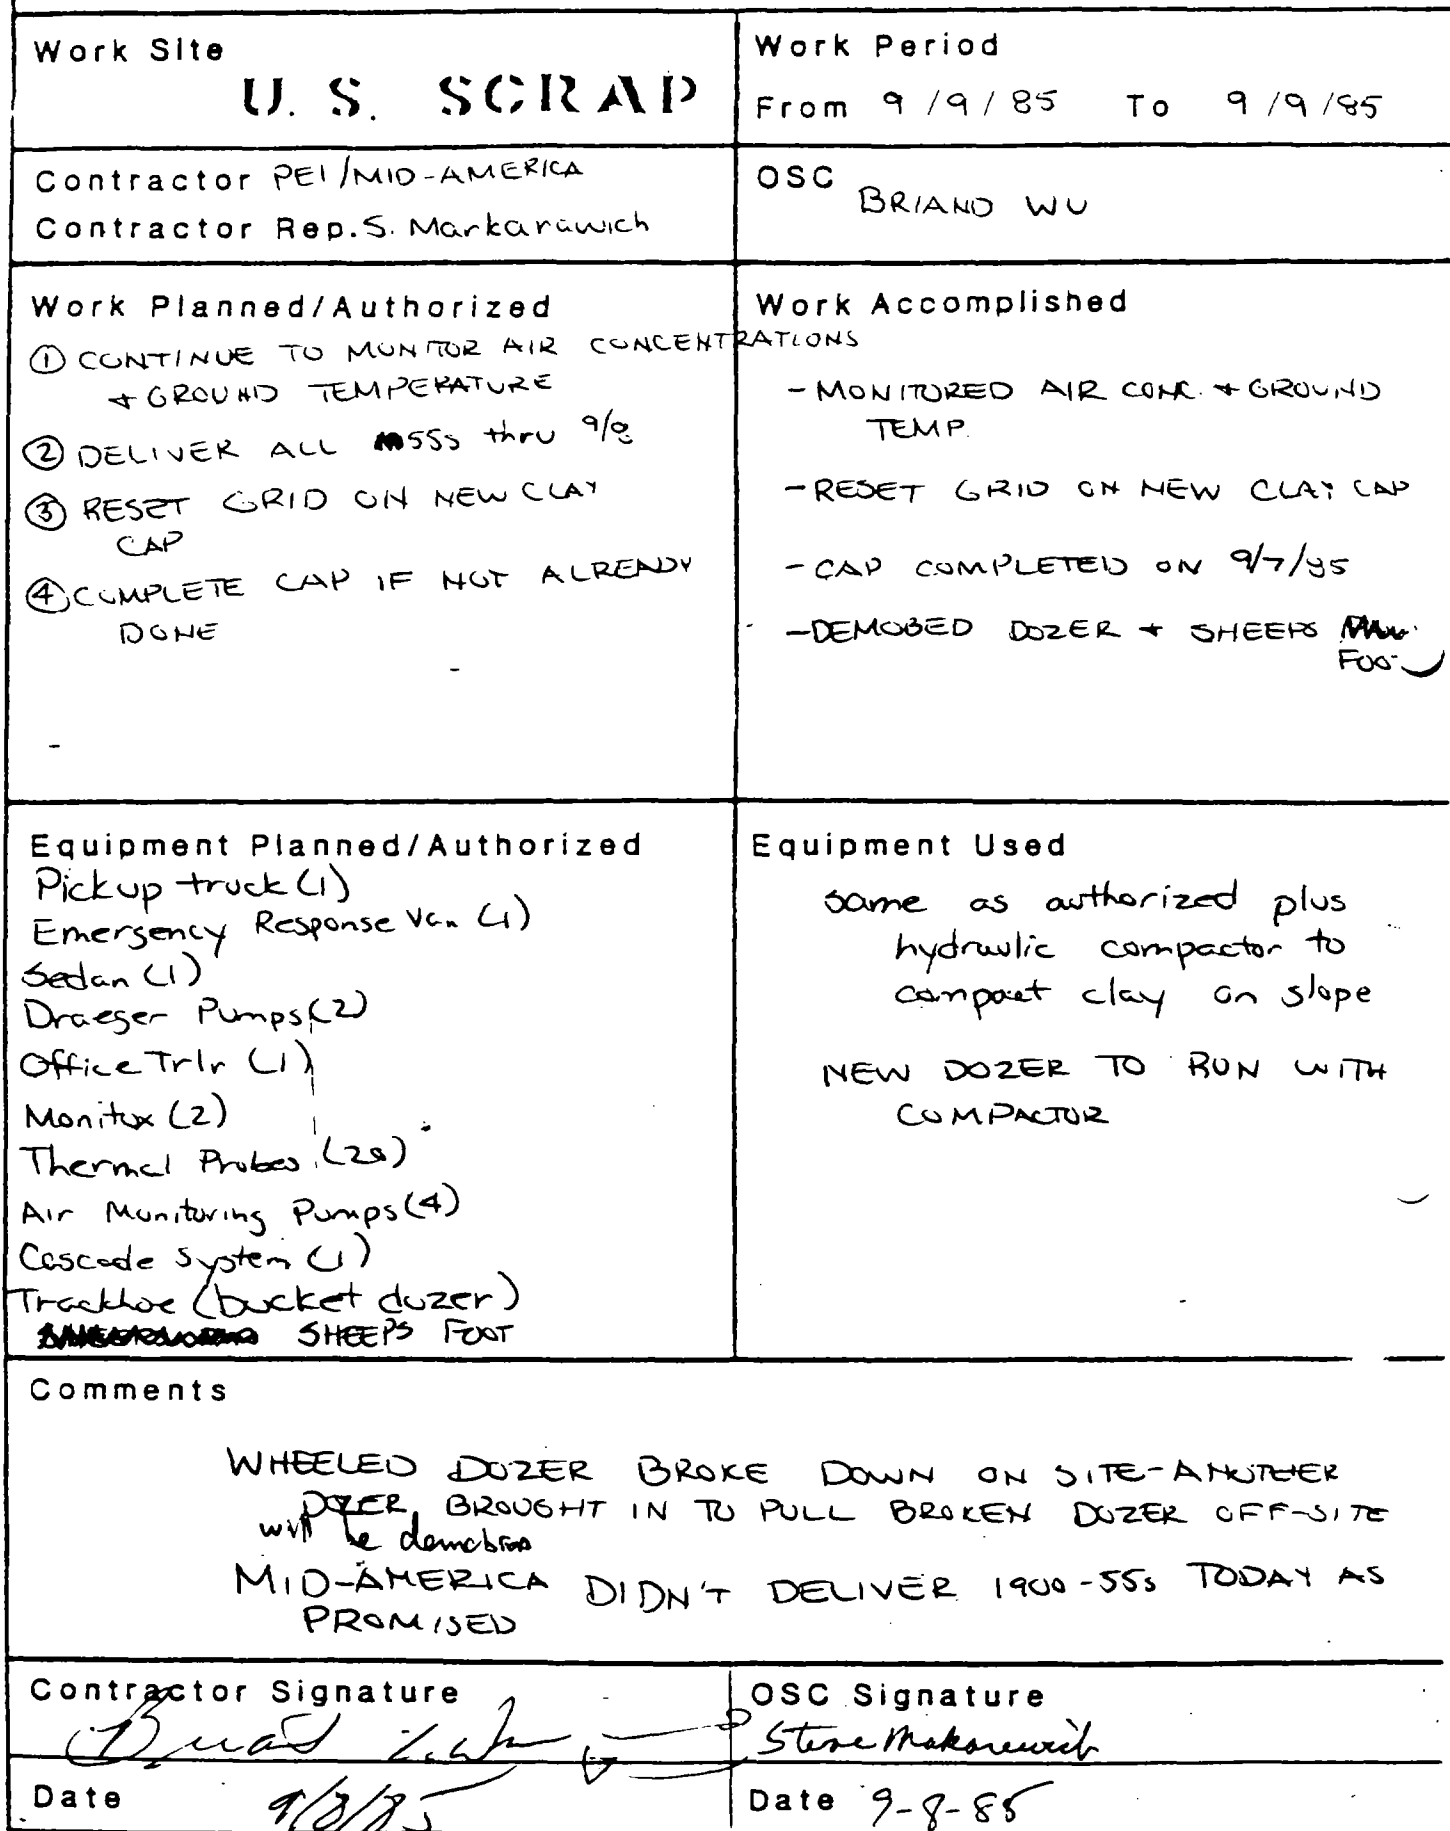 Work Site
U. S. SCRAP
Work Period
From 9/9/85 To 9/9/85
Contractor PEI/MID-AMERICA
Contractor Rep. S. Markarawich
OSC
BRIAND WU
Work Planned/Authorized
① CONTINUE TO MONITOR AIR CONCENTRATIONS
+ GROUND TEMPERATURE
② DELIVER ALL 1955s thru 9/8
③ RESET GRID ON NEW CLAY
CAP
④ COMPLETE CAP IF NOT ALREADY
DONE
Work Accomplished
- MONITORED AIR CONC. + GROUND
TEMP.
- RESET GRID ON NEW CLAY CAP
- CAP COMPLETED ON 9/7/85
- DEMOBED DOZER + SHEEPS
FOOT
Equipment Planned/Authorized
Pickup truck (1)
Emergency Response Van (1)
Sedan (1)
Draeger Pumps (2)
Office Trlr (1)
Monitox (2)
Thermal Probes (20)
Air Monitoring Pumps (4)
Cascade System (1)
Trackhoe (bucket dozer)
SHEEPS FOOT
Equipment Used
same as authorized plus
hydraulic compactor to
compact clay on slope
NEW DOZER TO RUN WITH
COMPACTOR
Comments
WHEELED DOZER BROKE DOWN ON SITE-ANOTHER
DOZER BROUGHT IN TO PULL BROKEN DOZER OFF-SITE
will be
MID-AMERICA DIDN'T DELIVER 1900-55s TODAY AS
PROMISED
Contractor Signature
OSC Signature
Steve Makarewich
Date 9/8/85
Date 9-8-85